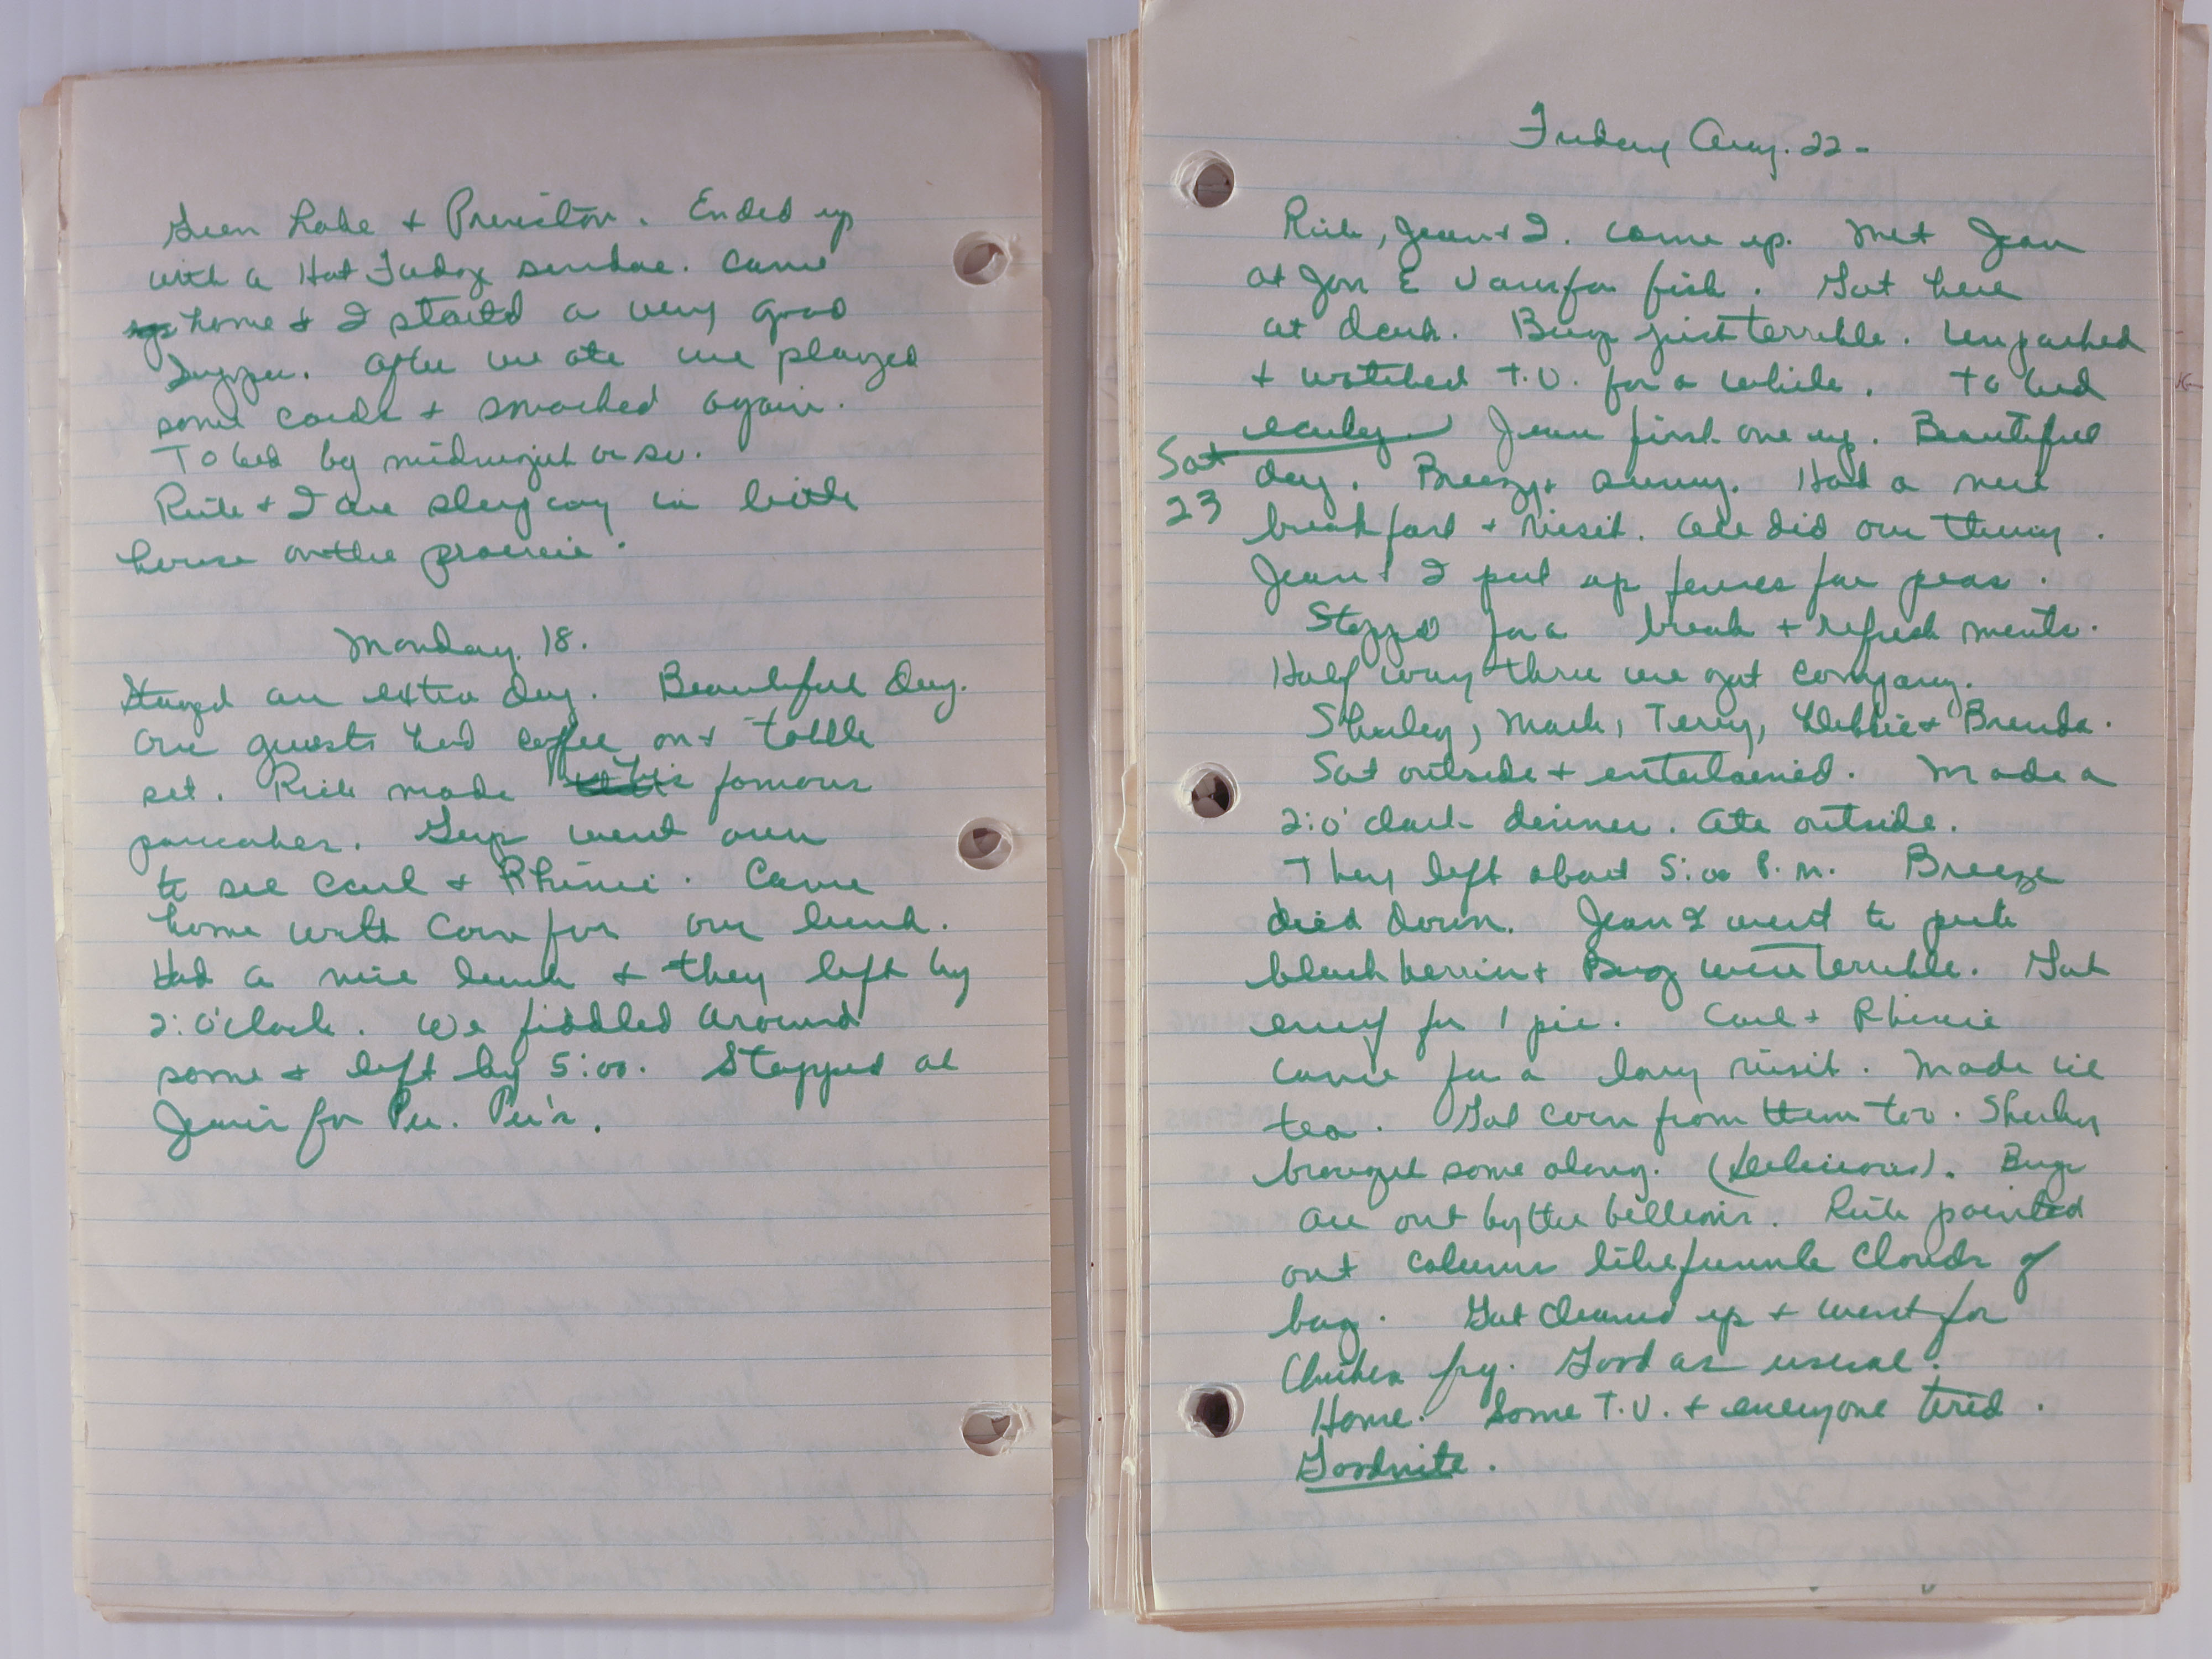 Green Lake + Princeton. Ended up
with a Hot Fudge sundae. Came
home & I started a very good
Supper. After we ate we played
some cards + snacked again.
To bed by midnight or so.
Rich + I are sleeping in little
house on the prairie.
Monday. 18.
Stayed an extra day. Beautiful Day.
Our guests had coffee on + table
set. Rich made his famous
pancakes. Guys went over
to see Carl + Rhinie. Came
home with Corn for our lunch.
Had a nice lunch + they left by
2:o'clock. We fiddled around
some + left by 5:00. Stopped at
for Pee. Pee's.
Friday Aug. 22-
Rich, Jean + I. came up. Met Jean
at Jon E Vans for fish. Got here
at dark. Bugs just terrible. Unpacked
+ watched T.V. for a while. To bed
early. Jean first one up. Beautiful
Sat
23
day. Breezy + sunny. Had a nice
breakfast + visit. All did our thing.
Jean + I put up fences for peas.
Stopped for a break + refreshments.
Half way thru we got company.
Shirley, Mark, Terry, Debbie + Brenda.
Sat outside + entertained. Made a
2:o'clock dinner. Ate outside.
They left about 5:00 P.M. Breeze
died down. Jean & I went to pick
blackberries + Bugs were terrible. Got
enuf for 1 pie. Carl + Rhinie
came for a long visit. Made ice
tea. Got corn from them too. Shirley
brought some along. (Delicious). Bugs
are out by the billions. Rich pointed
out columns like funnle Clouds of
bugs. Got cleaned up + went for
Chicken fry. Good as usual.
Home. Some T.V. + everyone tired.
Goodnite.